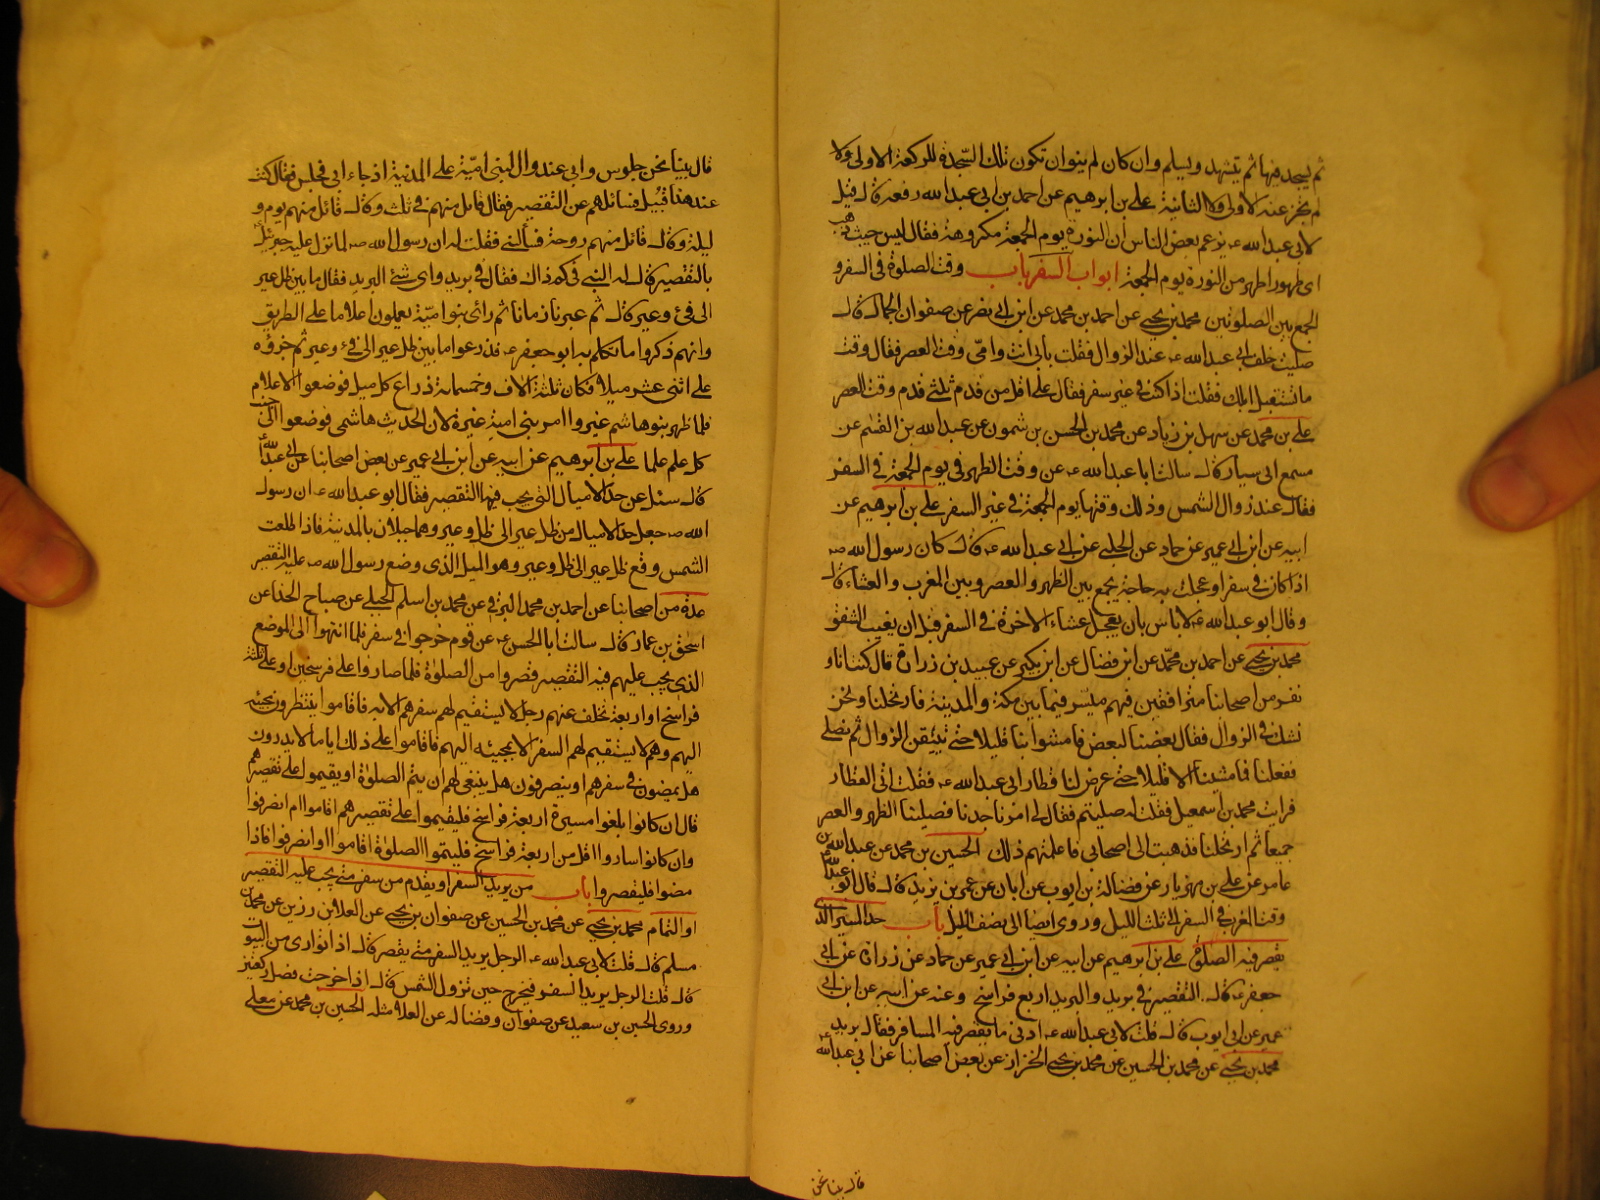 ثم يسجد فيها ثم يتشهد ويسلم وان كان لم ينوان تكون تلك السجدة للركعة الاولى ولا
لم تجز عنه الاولى ولا الثانية علي بن ابرهيم عن احمد بن ابي عبد الله رفعه قال قيل
لابي عبد الله عه يزعم بعض الناس ان النورة يوم الجمعة مكروهة فقال ليس حيث تذهب
اى طهور اطهر من النورة يوم الجمعة ابواب السفر باب وقت الصلوة فى السفر و
الجمع بين الصلوتين محمد بن يحيى عن احمد بن محمد عن ابن ابي نصر عن صفوان الجمال قال
صليت خلف ابي عبد الله عه عند الزوال فقلت بأبي انت وامّي وقت العصر فقال وقت
ما تستقبل ابلك فقلت اذا كنت فى غير سفر فقال على اقل من قدم ثلثي قدم وقت العصر
علي بن محمد عن سهل بن زياد عن محمد بن الحسن بن شمون عن عبد الله بن القسم عن
مسمع ابي سيار قال سالت ابا عبد الله عه عن وقت الظهر فى يوم الجمعة فى السفر
فقال عند زوال الشمس وذلك وقتها يوم الجمعة فى غير السفر علي بن ابرهيم عن
ابيه عن ابن ابي عمير عن حماد عن الحلبي عن ابي عبد الله عه قال كان رسول الله صه
اذا كان فى سفر او عجلت به حاجة يجمع بين الظهر والعصر وبين المغرب والعشاء قال
وقال ابو عبد الله عه لا باس بان يعجل عشاء الاخرة فى السفر قبل ان يغيب الشفق
محمد بن يحيى عن احمد بن محمّد عن ابن فضال عن ابن بكير عن عبيد بن زرارة قال كنت انا و
نفر من اصحابنا مترافقين فيهم ميسر فيما بين مكة والمدينة فارتحلنا ونحن
نشك فى الزوال فقال بعضنا لبعض فامشوا بنا قليلا حتى نتيقن الزوال ثم نصلي
ففعلنا فما مشينا الا قليلا حتى عرض لنا قطار ابي عبد الله عه فقلت اتى القطار
فرايت محمد بن اسمعيل فقلت له صليتم فقال لي امرنا جدنا فصلينا الظهر والعصر
جميعا ثم ارتحلنا فذهبت الى اصحابي فاعلمتهم ذلك الحسين بن محمد عن عبد الله بن
عامر عن علي بن مهزيار عن فضالة بن ايوب عن ابان عن عمر بن يزيد قال قال ابو عبد الله عه
وقت المغرب فى السفر الى ثلث الليل وروى ايضا الى نصف الليل باب حد السير الذى
تقصر فيه الصلوة علي بن ابرهيم عن ابيه عن ابن ابي عمير عن حماد عن زرارة عن ابي
جعفر عه قال التقصير فى بريد والبريد اربع فراسخ وعنه عن ابيه عن ابن ابي
عمير عن ابي ايوب قال قلت لابي عبد الله عه ادنى ما يقصر فيه المسافر فقال بريد
محمد بن يحيى عن محمد بن الحسين عن محمد بن يحيى الخزاز عن بعض اصحابنا عن ابي عبد الله عه
قال بينا نحن
قال بينا نحن جلوس وابي عند وال لبنى اميّة على المدينة اذ جاء ابي فجلس فقال كنت
عند هذا قبيل فسائلهم عن التقصير فقال قائل منهم فى ثلث وقال قائل منهم يوم و
ليلة وقال قائل منهم روحة فسألني فقلت له ان رسول الله صه لما نزل عليه جبرئيل
بالتقصير قال له النبي فى كم ذاك فقال فى بريد واى شئ البريد فقال ما بين ظل عير
الى فئ وعير قال ثم عبرنا زمانا ثم رأى بنو اميّة يعملون اعلاما على الطريق
وانهم ذكروا ما تكلم به ابو جعفر عه فذرعوا ما بين ظل عير الى فئ وعير ثم جزوه
على اثنى عشر ميلا فكان ثلثة الاف وخمسماة ذراع كل ميل فوضعوا الاعلام
فلما ظهر بنو هاشم غيروا امر بنى امية غيرة لان الحديث هاشمى فوضعوا الى جنب
كل علم علما علي بن ابرهيم عن ابيه عن ابن ابي عمير عن بعض اصحابنا عن ابي عبد الله عه
قال سئل عن حد الاميال التى يجب فيها التقصير فقال ابو عبد الله عه ان رسول
الله صه جعل حد الاميال من ظل عير الى ظل وعير وهما جبلان بالمدينة فاذا طلعت
الشمس وقع ظل عير الى ظل وعير وهو الميل الذى وضع رسول الله صه عليه التقصير
عدة من اصحابنا عن احمد بن محمد البرقي عن محمد بن اسلم الجبلي عن صباح الحذا عن
اسحق بن عمار قال سالت ابا الحسن عه عن قوم خرجوا فى سفر فلما انتهوا الى الموضع
الذى يجب عليهم فيه التقصير قصروا من الصلوة فلما صاروا على فرسخين او على ثلثة
فراسخ او اربعة تخلف عنهم رجل لا يستقيم لهم سفرهم الا به فاقاموا ينتظرون مجيئه
اليهم وهم لا يستقيم لهم السفر الا بمجيئه اليهم فاقاموا على ذلك اياما لا يدرون
هل يمضون فى سفرهم او ينصرفون هل ينبغى لهم ان يتم الصلوة او يقيموا على تقصيرهم
قال ان كانوا بلغوا مسيرة اربعة فراسخ فليقيموا على تقصيرهم اقاموا ام انصرفوا
وان كانوا ساروا اقل من اربعة فراسخ فليتموا الصلوة اقاموا او انصرفوا فاذا
مضوا فليقصروا باب من يريد السفر او يقدم من سفر متى يجب عليه التقصير
او التمام محمد بن يحيى عن محمد بن الحسين عن صفوان بن يحيى عن العلا بن رزين عن محمد بن
مسلم قال قلت لابي عبد الله عه الرجل يريد السفر متى يقصر قال اذا توارى من البيوت
قال قلت الرجل يريد السفر فيخرج حين تزول الشمس قال اذا خرجت فصل ركعتين
وروى الحسين بن سعيد عن صفوان وفضاله عن العلا مثله الحسين بن محمد عن معلى